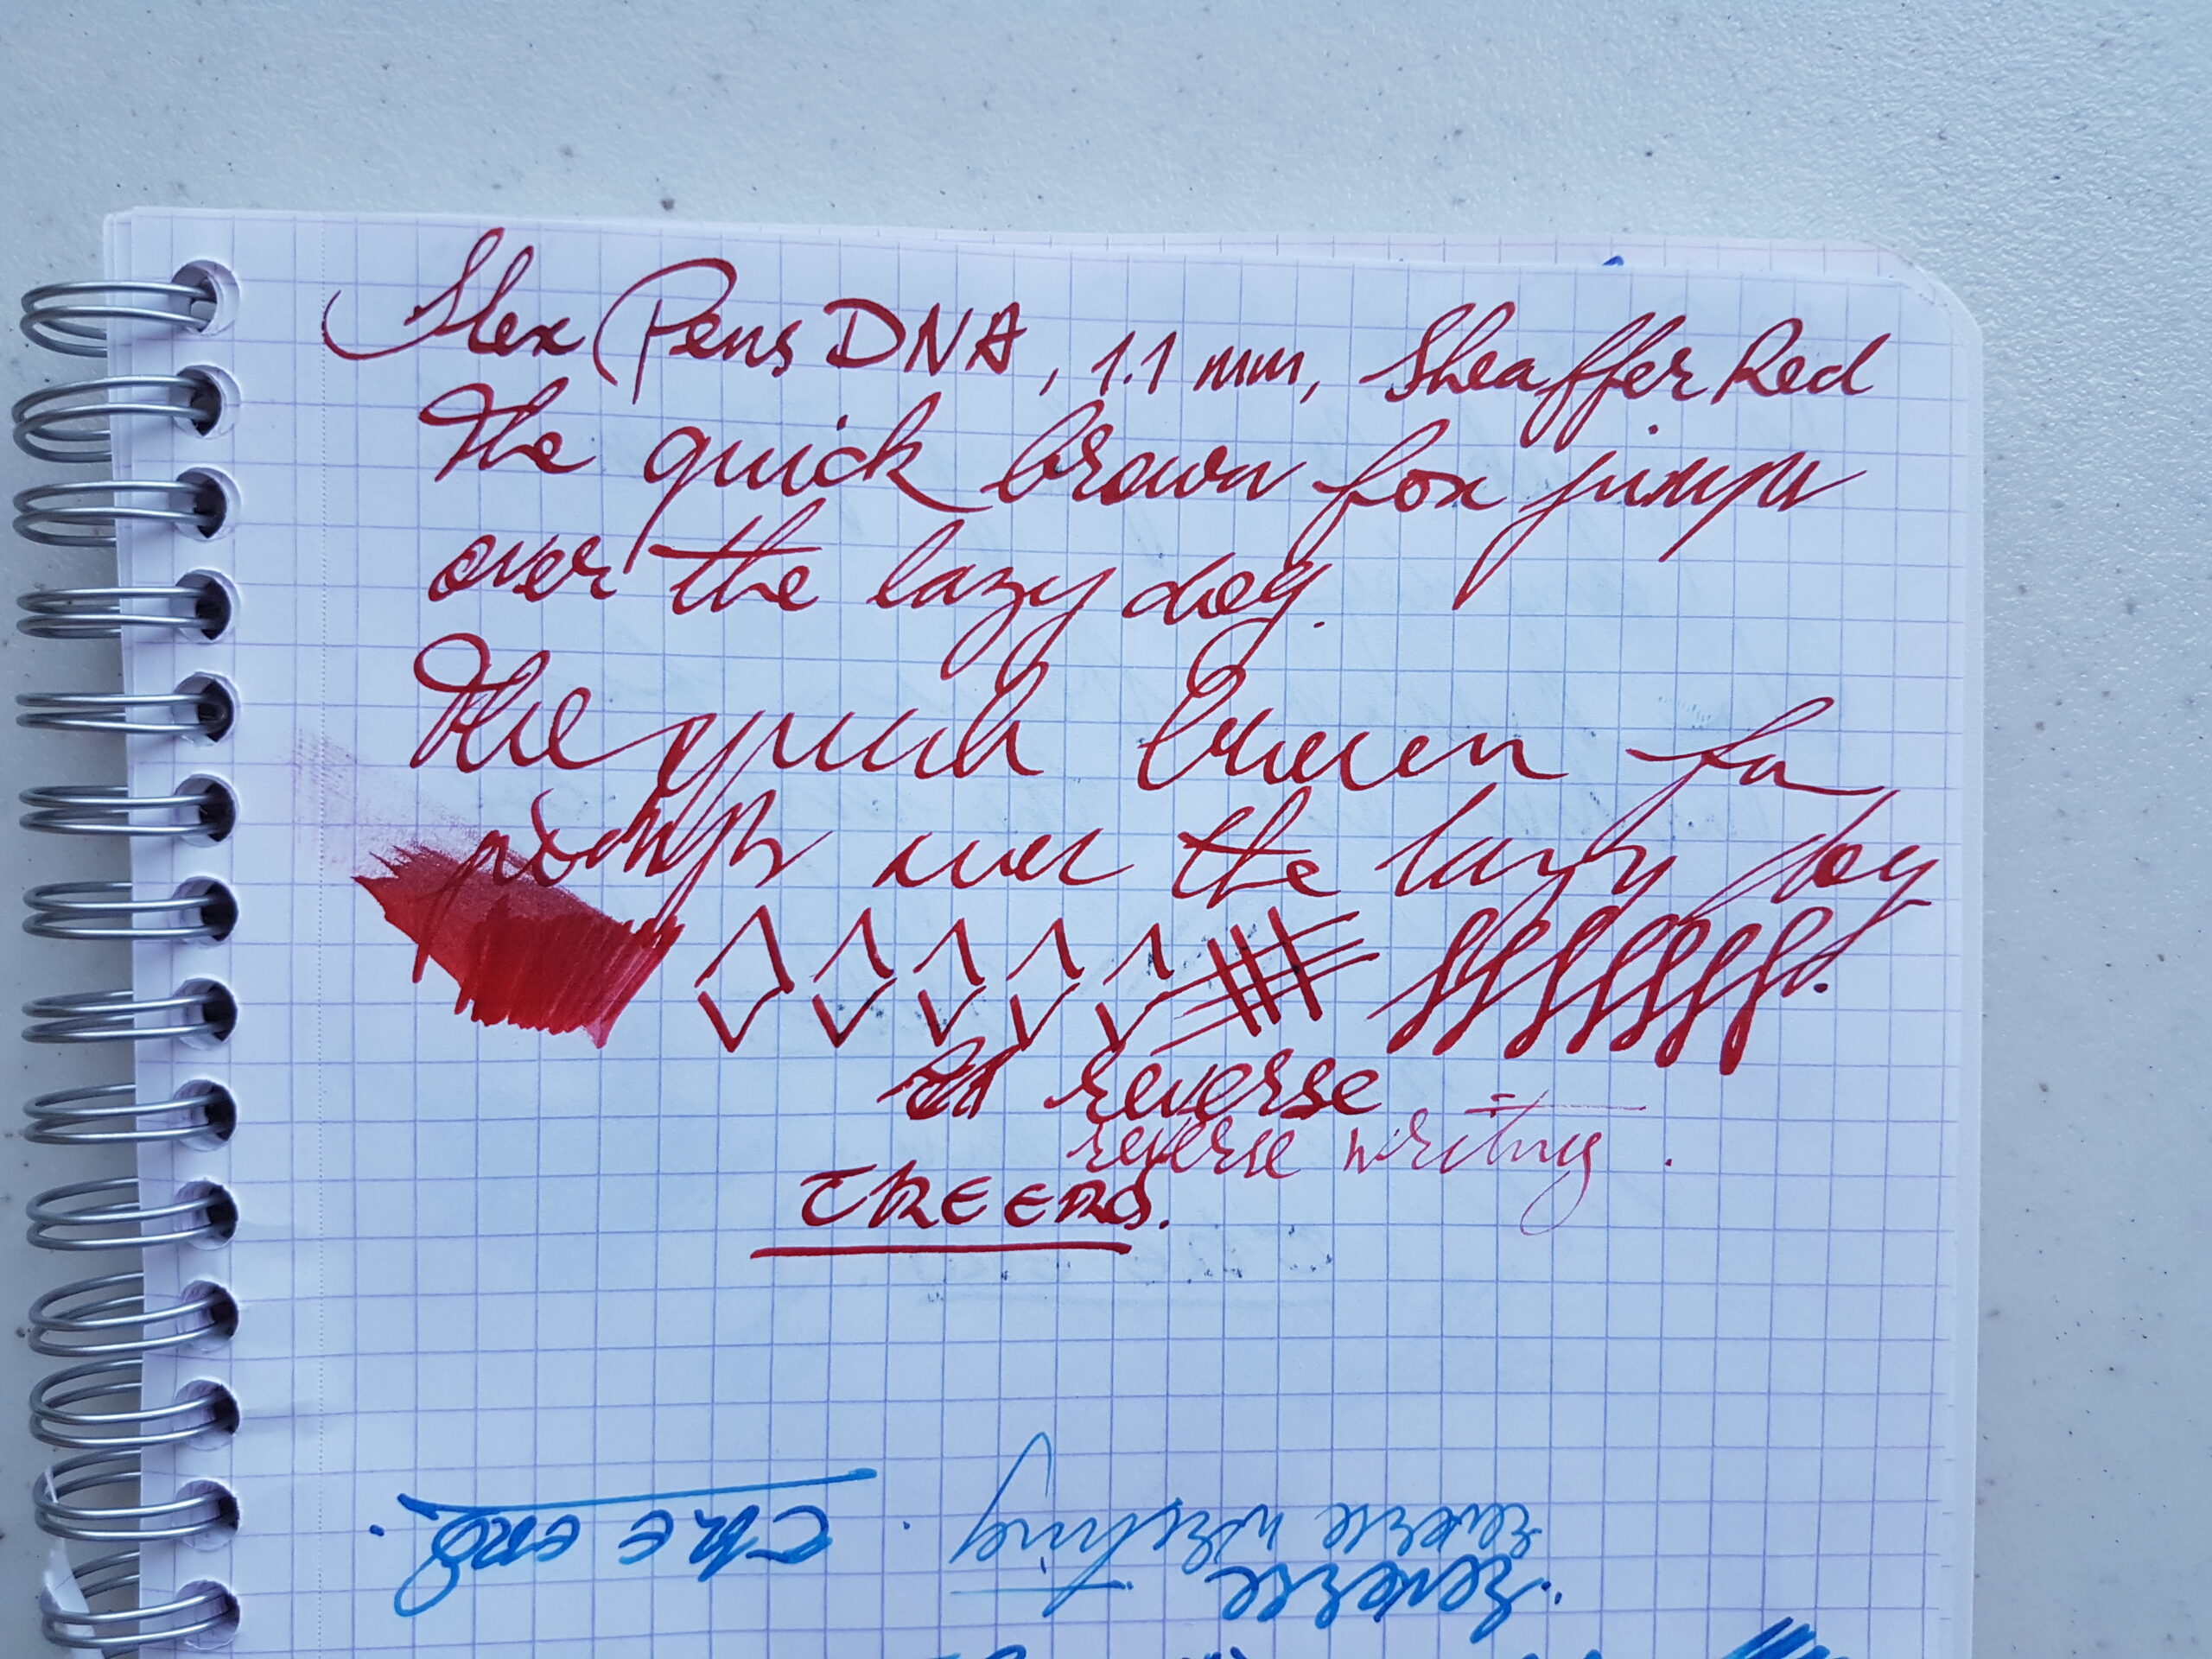 Flex Pens DNA, 1.1 mm, Sheaffer Red
The quick brown fox jumps
over the lazy dog.
The quick brown fox
jumps over the lazy dog.
reverse
reverse writing.
THE END.
reverse
reverse writing.
THE END.